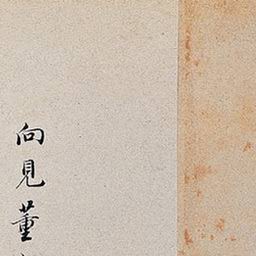 向見董